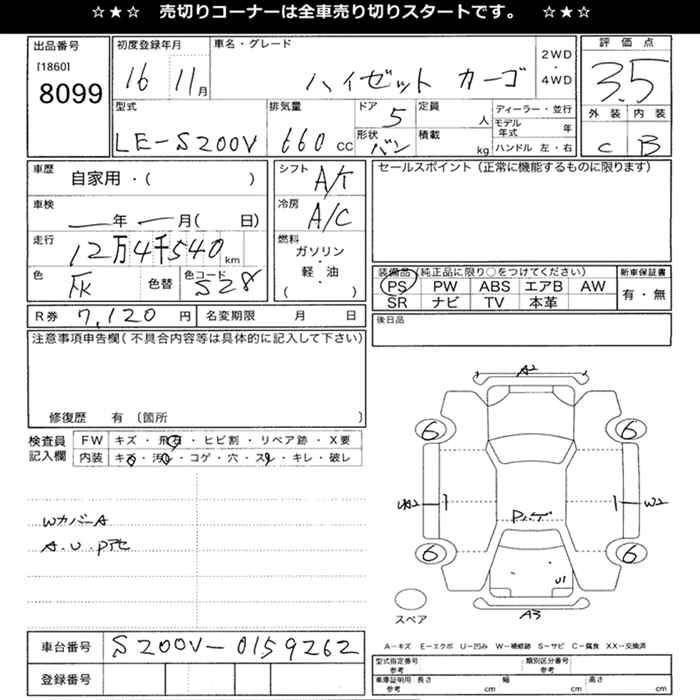 ☆★☆ 売切りコーナーは全車売り切りスタートです。 ☆★☆
出品番号
[1860]
8099
初度登録年月
16 11月
車名・グレード
ハイゼット カーゴ
2WD
・
4WD
評価点
3.5
外装 内装
C B
型式
LE-S200V
排気量
660 cc
ドア
5
形状
バン
定員
人
積載
kg
ディーラー・並行
モデル年式 年
ハンドル 左・右
車歴
自家用・( )
車検
—年 —月( 日)
走行
12万4千540 km
色
色替
色コード
S28
シフト
A/T
冷房
A/C
燃料
ガソリン・
軽・油
( )
セールスポイント(正常に機能するものに限ります)
装備品(純正品に限り○をつけてください)
PS PW ABS エアB AW
SR ナビ TV 本革
新車保証書
有・無
後日品
R券 7,120 円
名変期限 月 日
注意事項申告欄(不具合内容等は具体的に記入して下さい)
修復歴 有〔箇所 〕
検査員
記入欄
FW キズ・飛石・ヒビ割・リペア跡・X要
内装 キズ・汚れ・コゲ・穴・スレ・キレ・破レ
WカバーA
A.U.Pアセ
A2
6 6
W2
6 6
U1
A3
スペア
A-キズ E-エクボ U-凹み W-補修跡 S-サビ C-腐食 XX-交換済
車台番号 S200V-0159262
登録番号
型式指定番号
参考
類別区分番号
参考
車庫証明用
参考
長さ cm 幅 cm 高さ cm